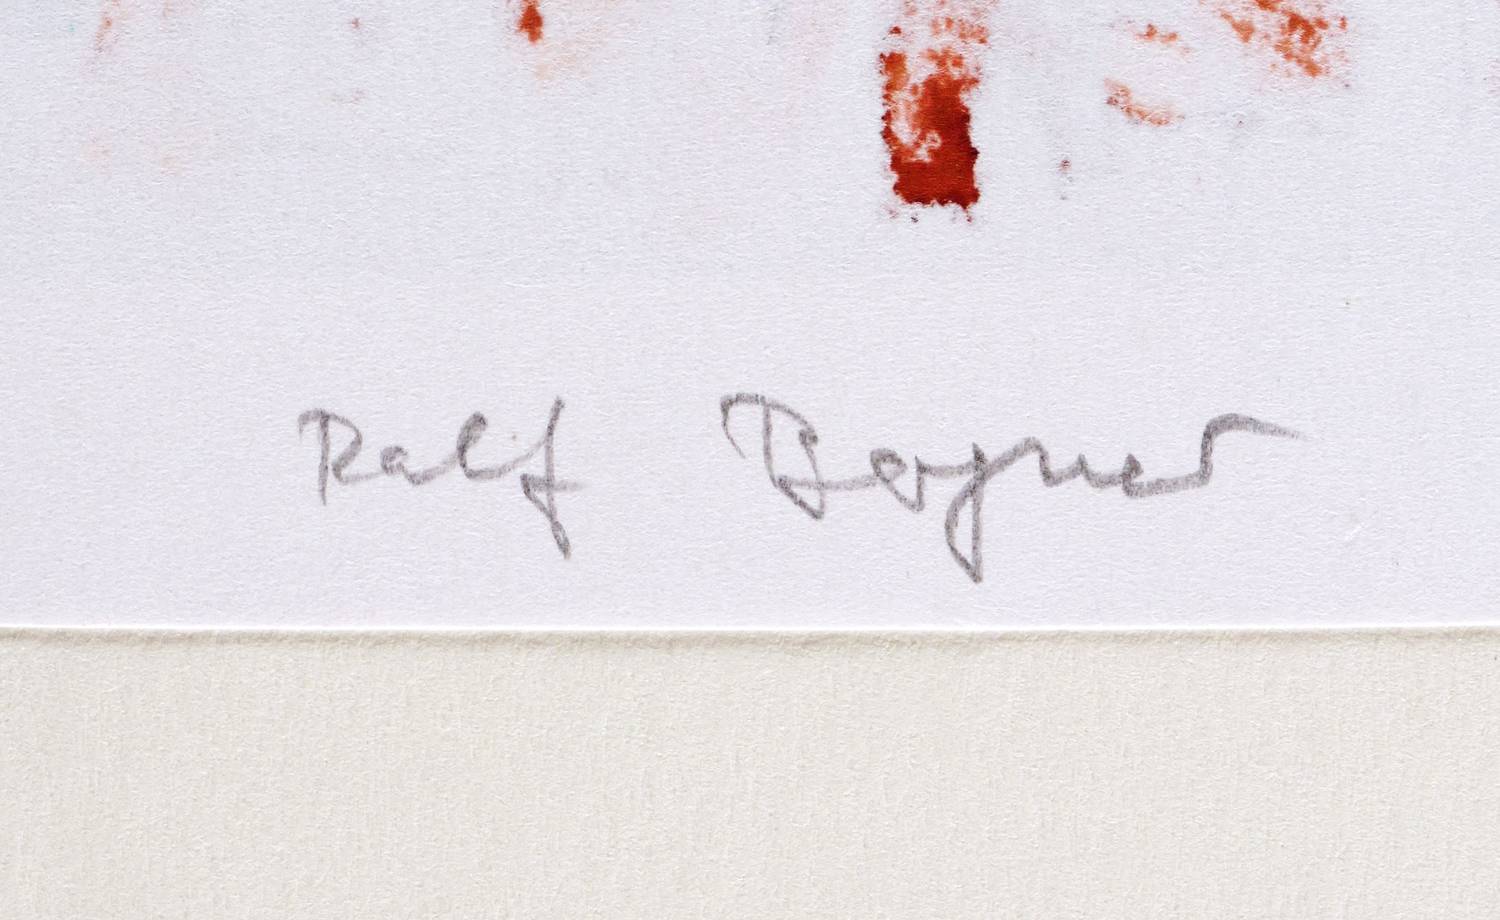 Ralf Bogner